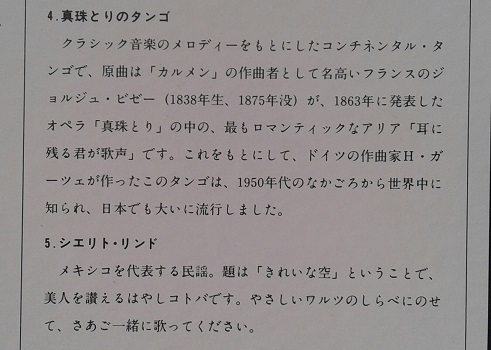 4.真珠とりのタンゴ
クラシック音楽のメロディーをもとにしたコンチネンタル・タ
ンゴで、原曲は「カルメン」の作曲者として名高いフランスのジ
ョルジュ・ビゼー（1838年生、1875年没）が、1863年に発表した
オペラ「真珠とり」の中の、最もロマンティックなアリア「耳に
残る君が歌声」です。これをもとにして、ドイツの作曲家H・ガ
ーツェが作ったこのタンゴは、1950年代のなかごろから世界中に
知られ、日本でも大いに流行しました。
5.シエリト・リンド
メキシコを代表する民謡。題は「きれいな空」ということで、
美人を讃えるはやしコトバです。やさしいワルツのしらべにのせ
て、さあご一緒に歌ってください。